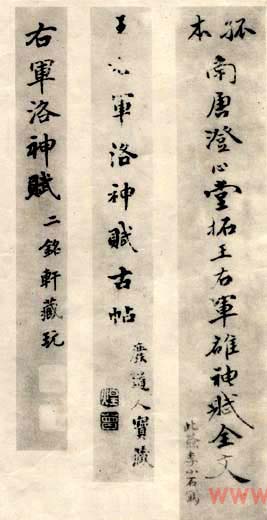 祕本
南唐澄心堂拓王右軍雒神賦全文
此籤李小石書
王右軍洛神賦古帖
道人寶藏
右軍洛神賦
二銘軒藏玩
www.